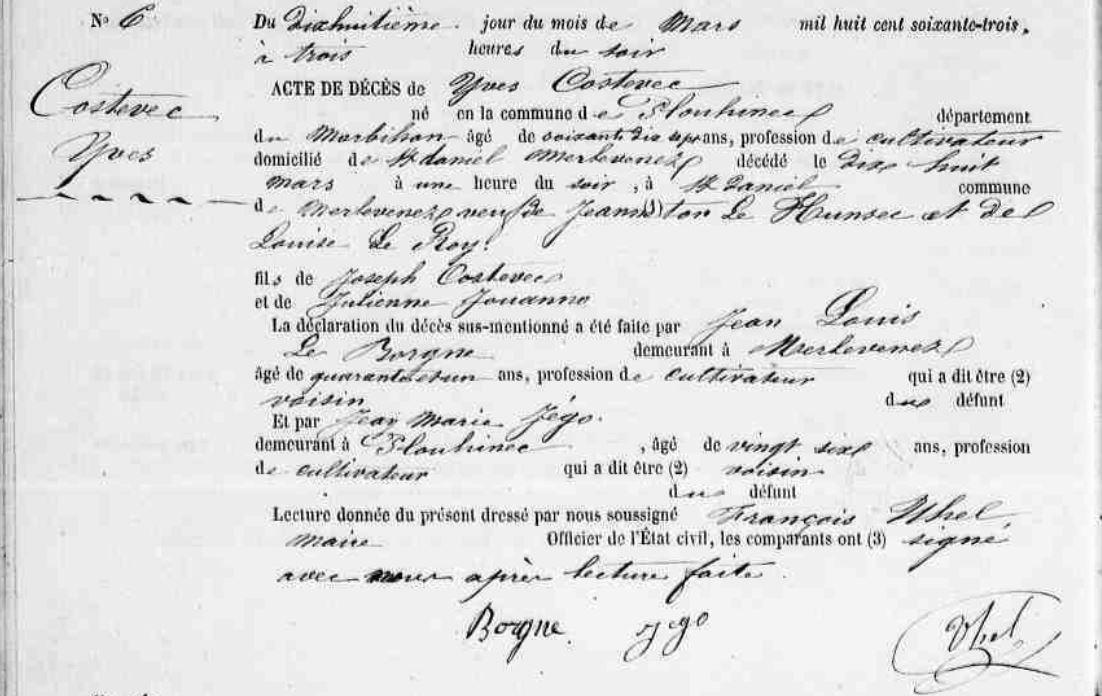 No 6 Du dixhuitième jour du mois de Mars mil huit cent soixante-trois,
à trois heures du soir
Costevec
Yves
ACTE DE DÉCÈS de Yves Costevec
né en la commune de Plouhinec département
du Morbihan âgé de soixante dix sept ans, profession de cultivateur
domicilié de St daniel Merlevenez décédé le dix huit
mars à une heure du soir, à St Daniel commune
de Merlevenez veuf de Jeanneton Le Hunsec et de
Louise Le Roy.
fils de Joseph Costevec
et de Julienne Jouanno
La déclaration du décès sus-mentionné a été faite par Jean Louis
Le Borgne demeurant à Merlevenez
âgé de quarante et un ans, profession de cultivateur qui a dit être (2)
voisin du défunt
Et par Jean Marie Jégo.
demeurant à Plouhinec, âgé de vingt six ans, profession
de cultivateur qui a dit être (2) voisin
du défunt
Lecture donnée du présent dressé par nous soussigné François Uhel,
maire Officier de l'État civil, les comparants ont (3) signé
avec nous après lecture faite.
Borgne jego Uhel